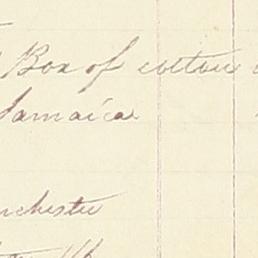 Box of cotton
Jamaica
nchester